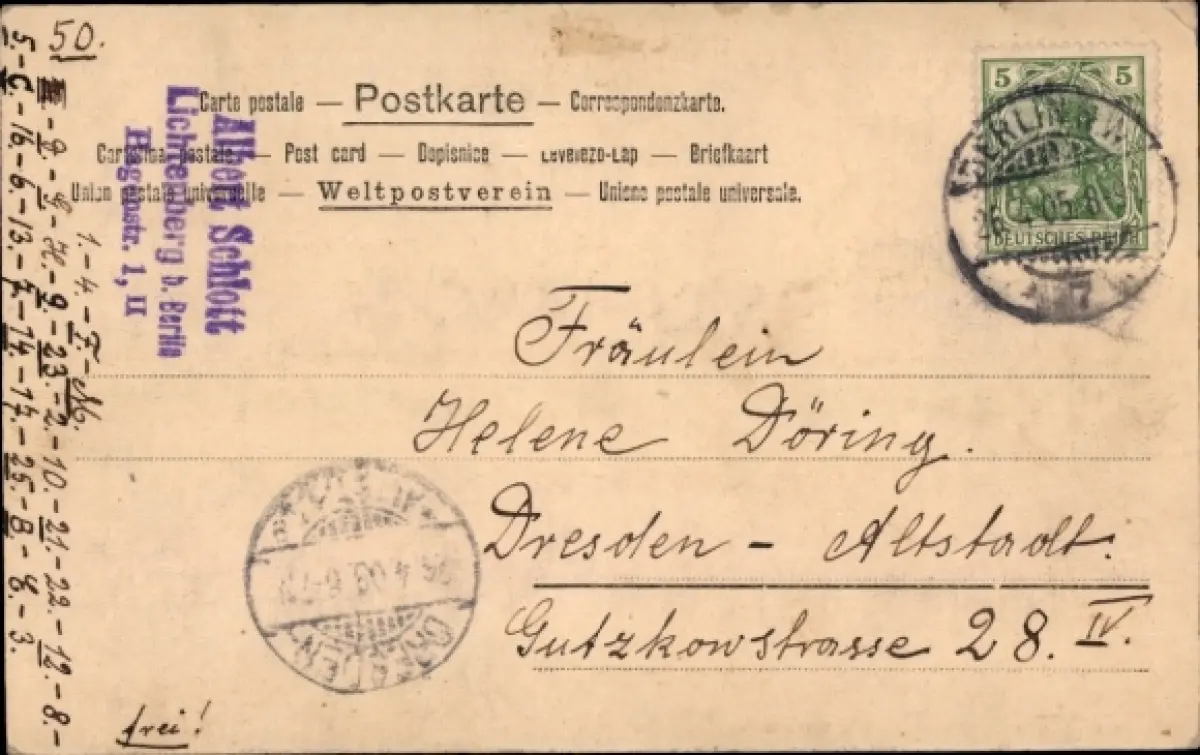 50.
Carte postale — Postkarte — Correspondenzkarte.
Cartolina postale — Post card — Dopisnice — Levelezo-Lap — Briefkaart
Union postale universelle — Weltpostverein — Unione postale universale.
Albert Schlott
Lichtenberg b. Berlin
Hagenstr. 1, II
5 5
DEUTSCHES REICH
BERLIN
26.4.05.
Fräulein
Helene Döring.
Dresden - Altstadt.
Gutzkowstrasse 28. IV.
DRESDEN
frei!
1.-4.-
9.-23.-2.-10.-21.-22.-12.-8.-
16.-6.-13.-7.-14.-17.-25.-8.-8.-3.